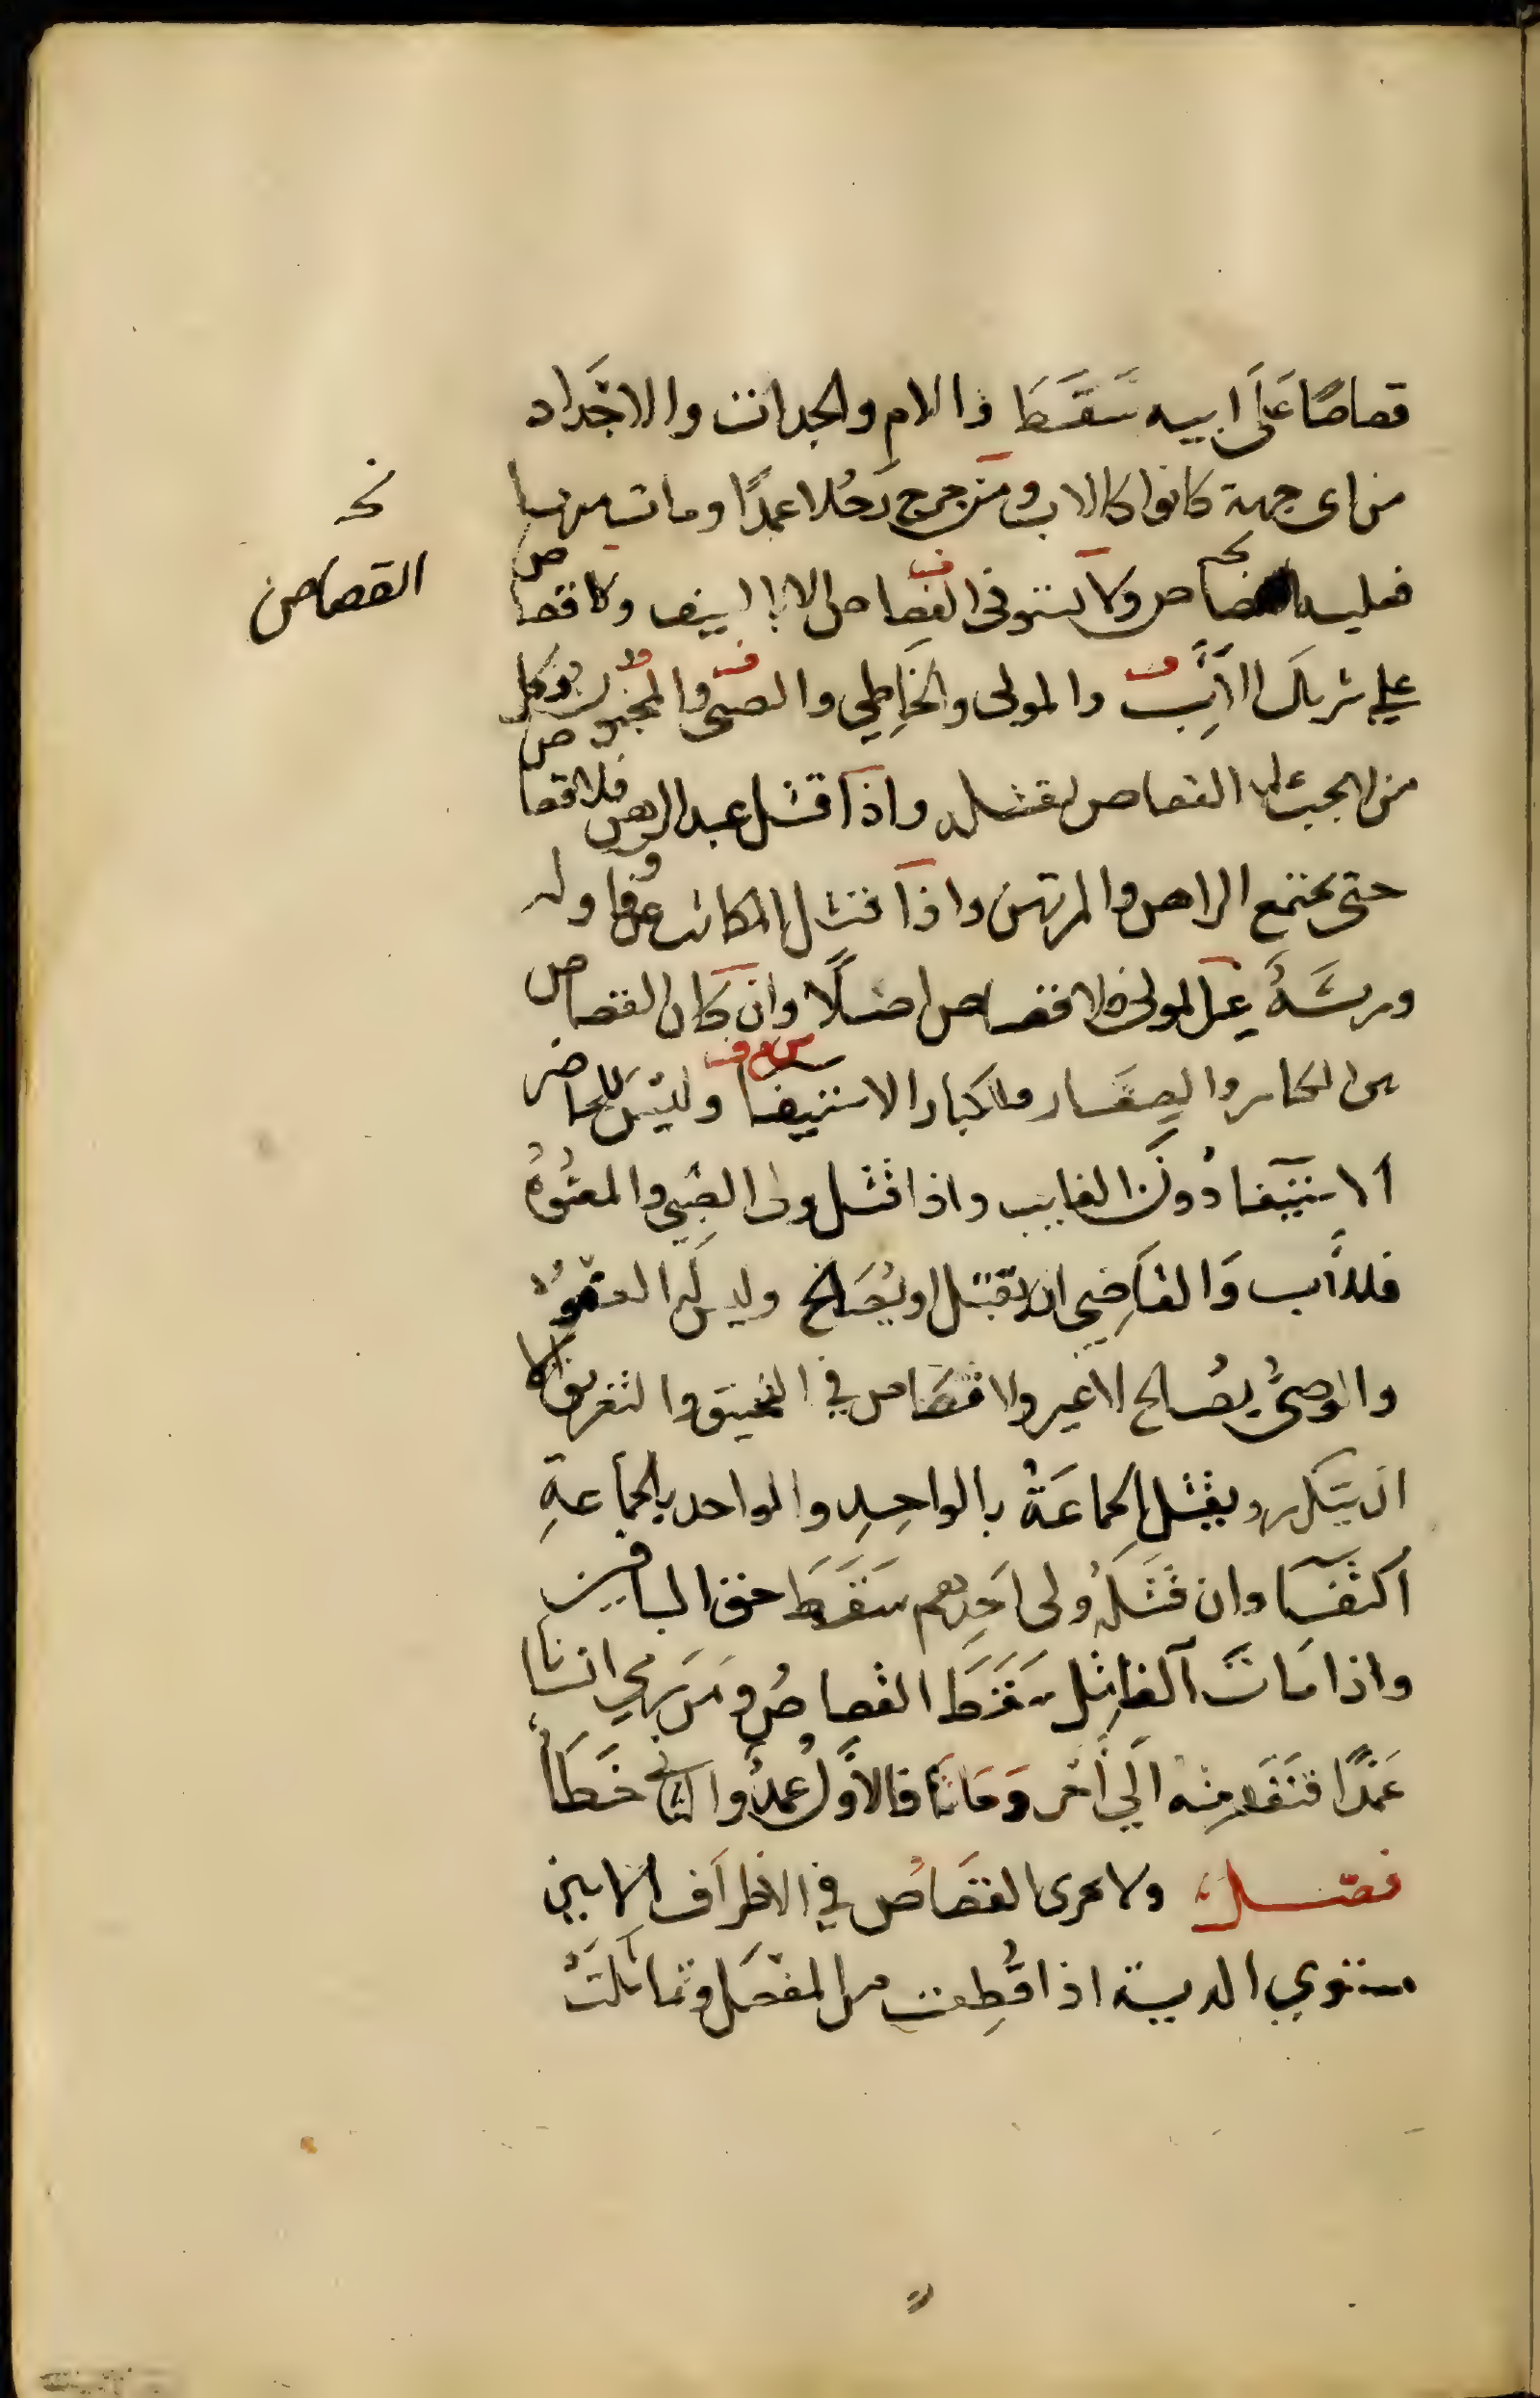 قصاصًا عَلَى ابيه سَقَطَ والام والجدات والاجَداد
من اى جهة كانوا كالاب ومَن جرح رَجُلا عمدًا ومات منها
فعليه القصاص ولا يستوفى القصاص الا بالسيف ولا قصاص
على شريك الاَبِ والمولى والخاطِي والصبى والمجنون وكل
من لا يجب القصاص بقتله واذا قتل عبد الرهن فلا قصاص
حتى يجتمع الراهن والمرتهن واذا قتل المكاتب عن وفا وله
ورثَةُ غير المولى فلا قصاص اصْلًا وان كان القصاص
بين الكبار والصِغَار فللكبار الاستيفا وليْسَ للحاضر
الاستيفا دُونَ الغايب واذا قتل ولى الصَبِي والمعتُوهُ
فللأَب وَالقَاضِي ان يقتل او يُصَالح وليس لَه العفوُ
والوصىُّ يصُالح لا غير ولا قصَاص في التخنيق والتغريق الا
ان يتَكرر ويقتل الجماعَةُ بالواحِدِ والواحد بالجماعةِ
اكتفَا وان قَتَلَهُ ولى اَحَدِهم سَقَطَ حق الباقين
واذا مَاتَ القاتِل سَقَطَ القصاصُ ومَن رمي انسانا
عَمْدًا فنَفَذ منْه اِلَى آخر وَمَاتَا فالاَوَّلُ عمدُ والثاني خَطَأ
فصـل ولا يجرى القصَاصُ في الاطراَف الا بين
مستوي الدية اذا قُطِعت من المفصَل وتماثلَتْ
نخـ
القصاص